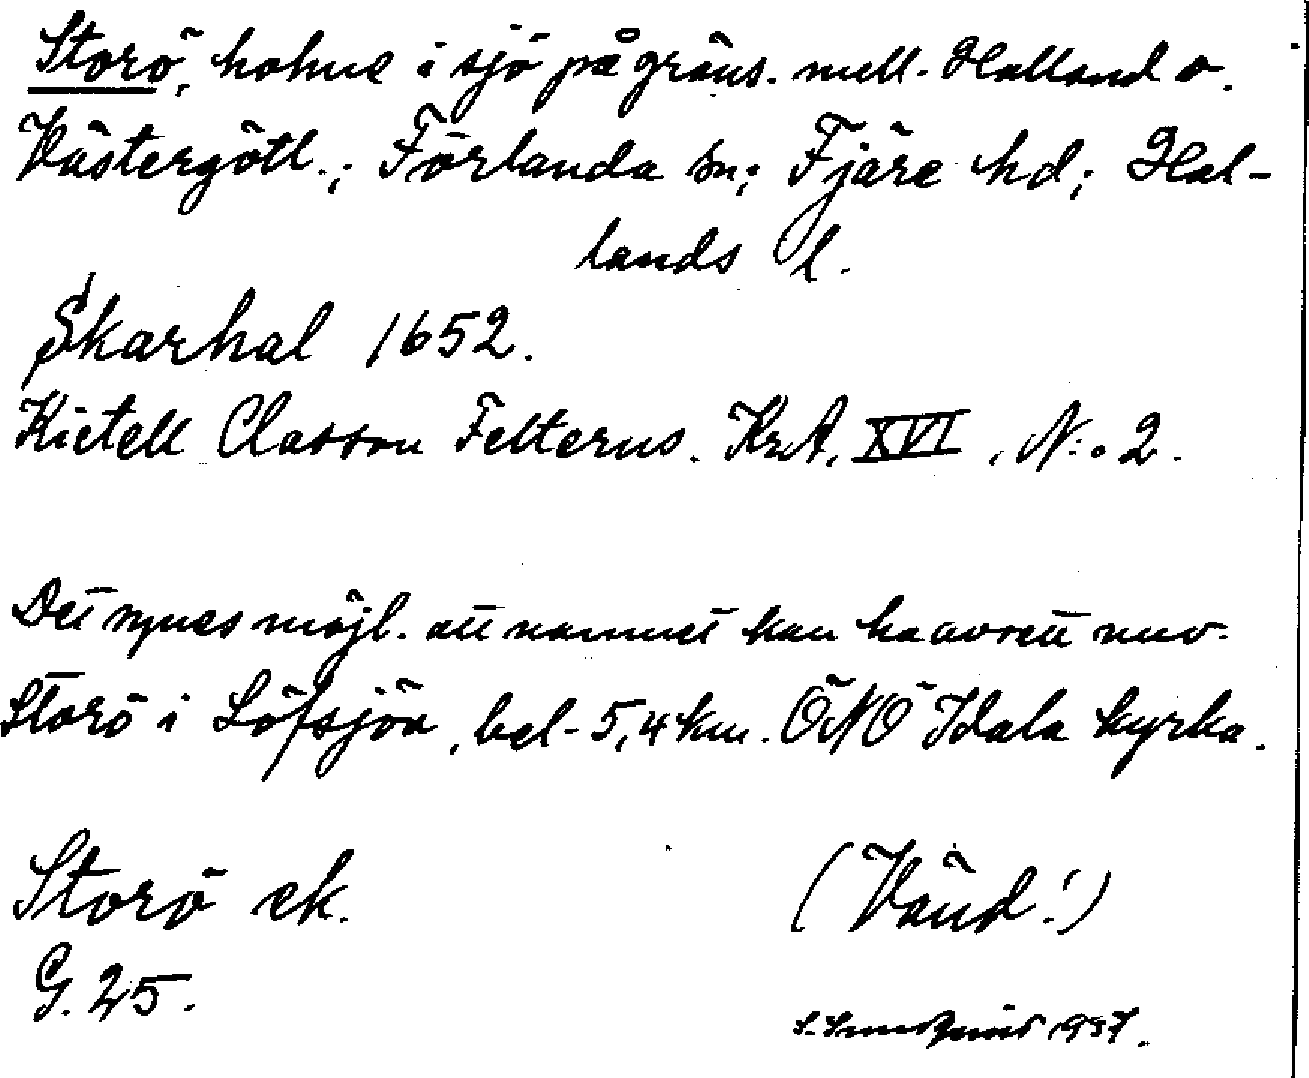 Storö, holme i sjö på gräns. mell. Halland o.
Västergötl.; Förlanda sn; Fjäre hd; Hal-
lands l.
Skarhal 1652.
Kietell Classon Felterus. KrA, XVI, N:o 2.
Det synes möjl. att namnet kan ha avsett nuv.
Storö i Löfsjön, bel. 5,4 km. ÖNÖ Idala kyrka.
Storö ek.
(Vänd!)
G. 25.
1937.